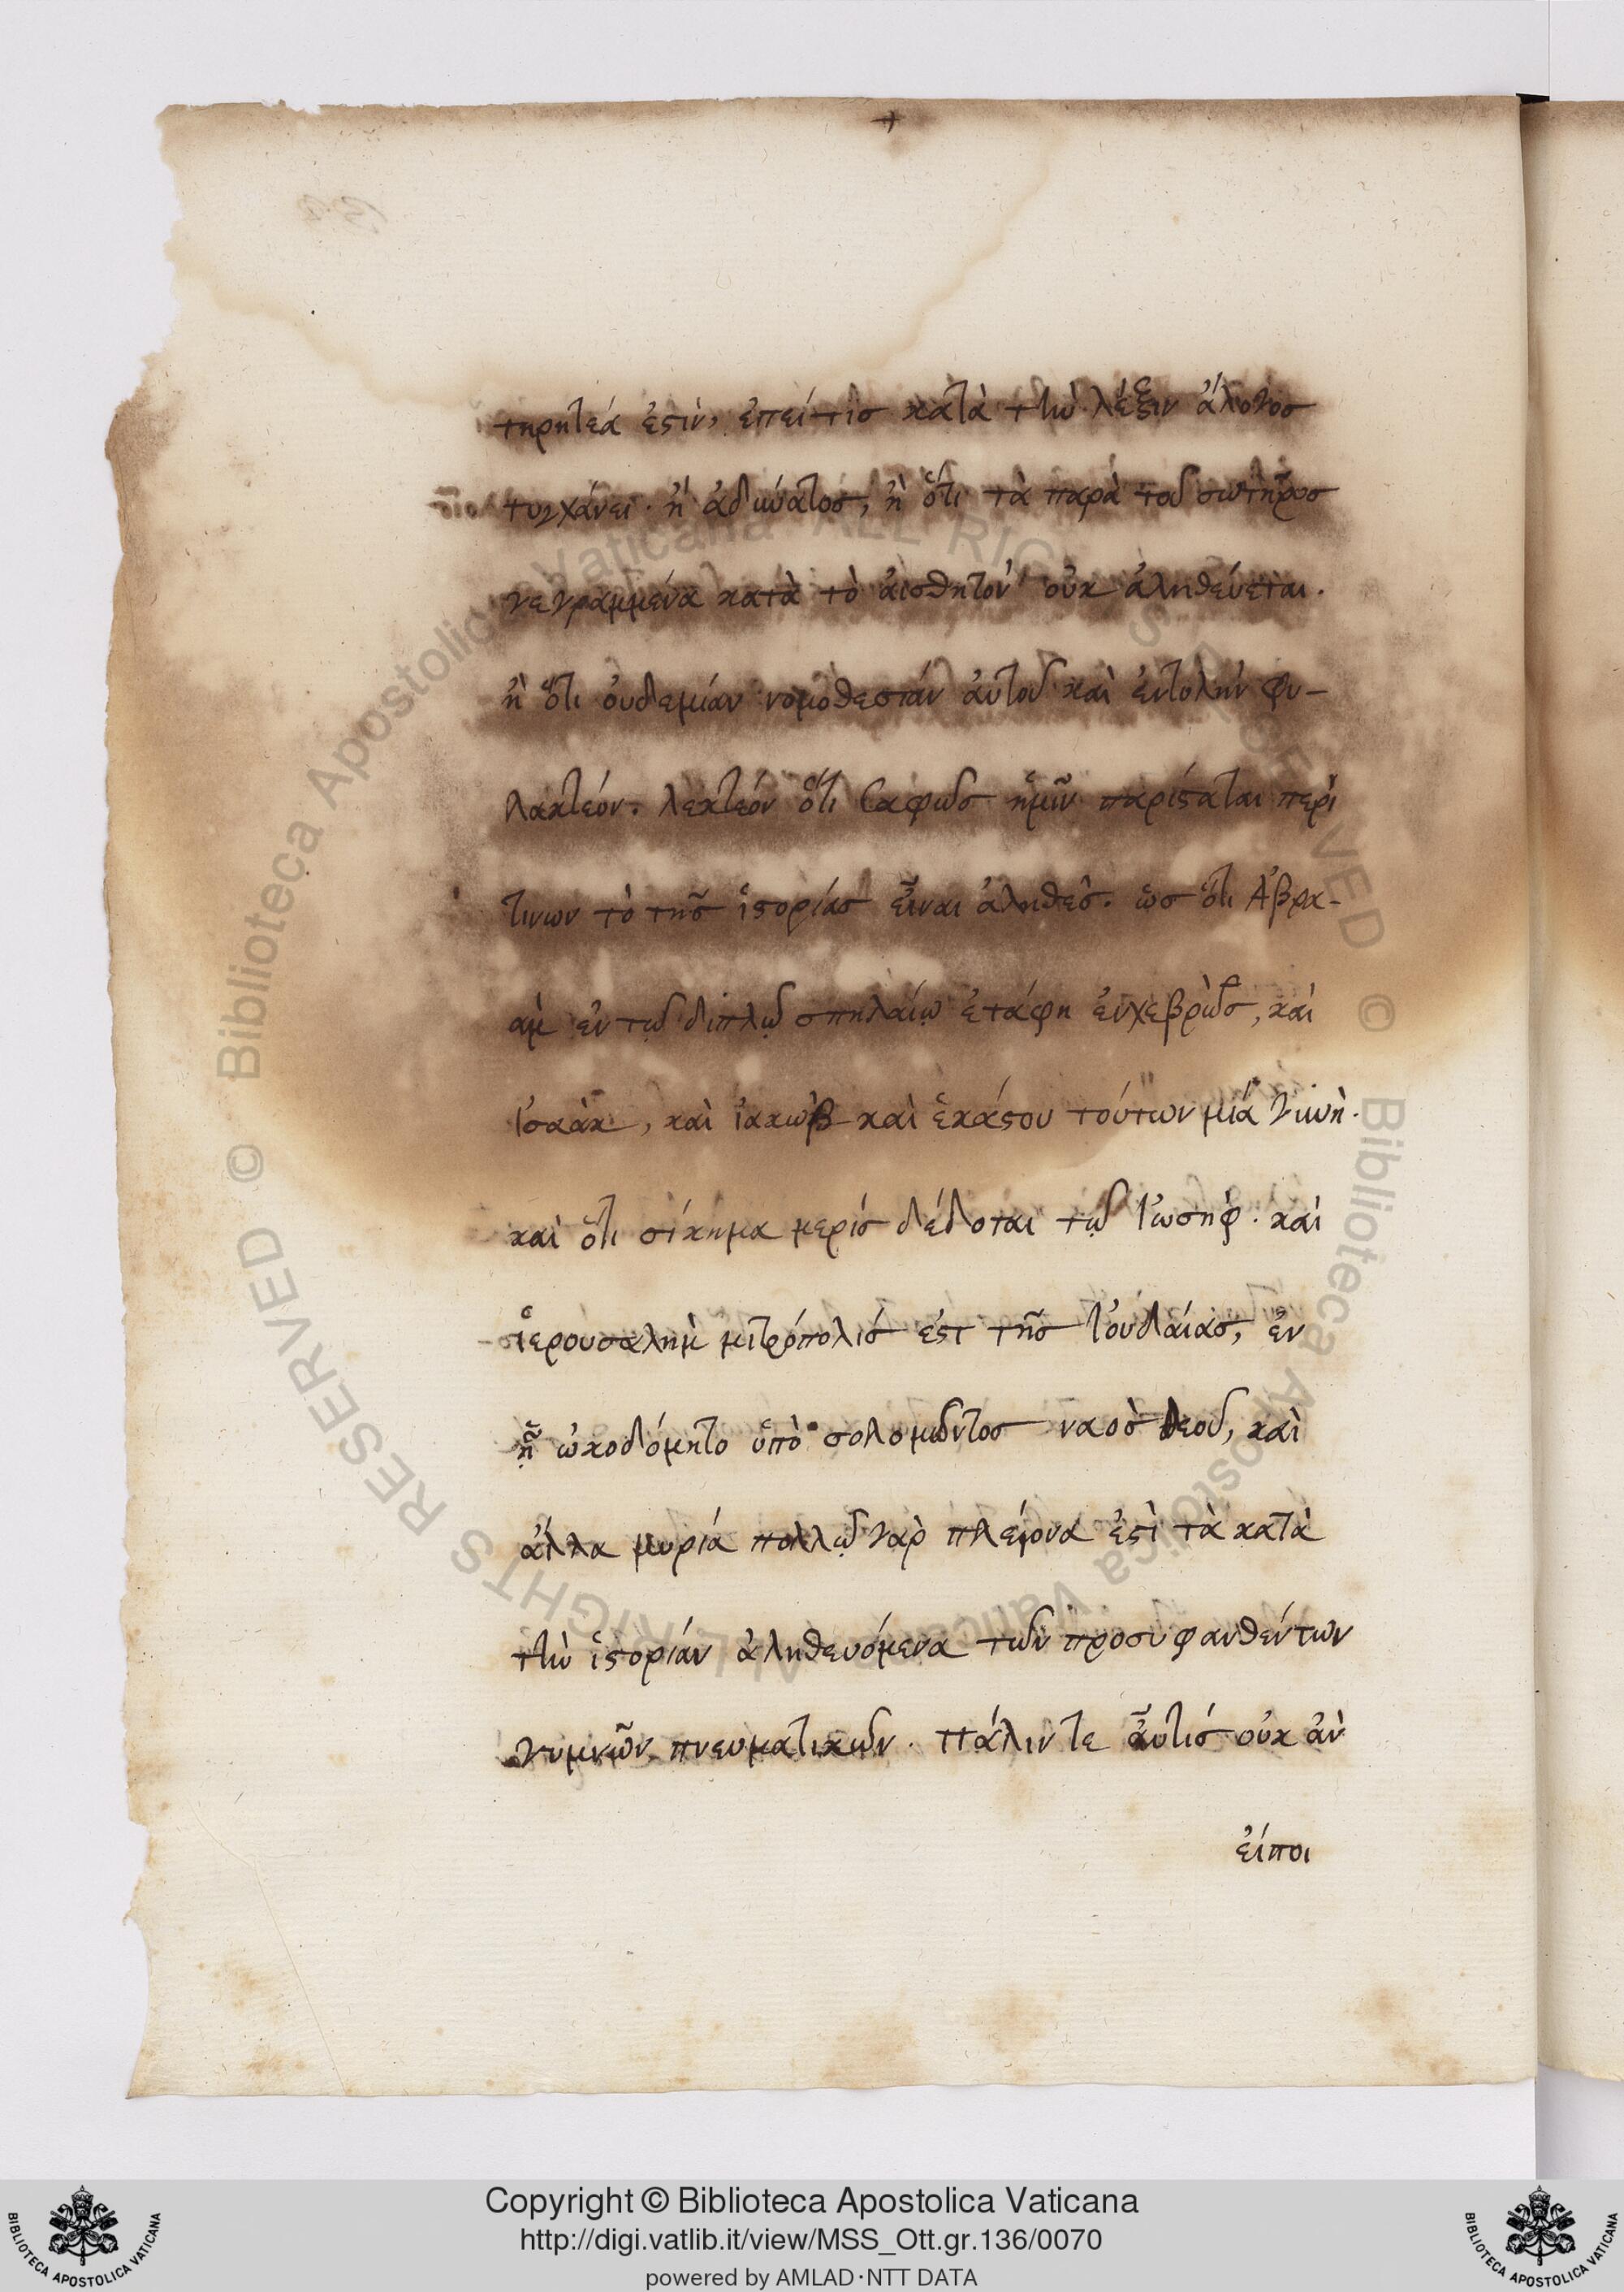 τηρητέα ἐστὶν, ἐπεί τις κατὰ τὴν λέξιν ἄλογος
τυγχάνει· ἢ ἀδύνατος, ἢ ὅτι τὰ παρὰ τοῦ σωτῆρος
γεγραμμένα κατὰ τὸ αἰσθητὸν οὐκ ἀληθεύεται.
ἢ ὅτι οὐδεμίαν νομοθεσίαν αὐτοῦ καὶ ἐντολὴν φυ-
λακτέον. λεκτέον ὅτι σαφῶς ἡμῖν παρίσταται περὶ
τινων τὸ τῆς ἱστορίας εἶναι ἀληθές. ὡς ὅτι Ἀβρα-
ὰμ ἐν τῷ διπλῷ σπηλαίῳ ἐτάφη ἐν χεβρὼν, καὶ
Ἰσαὰκ, καὶ ἰακὼβ καὶ ἑκάστου τούτων μία γυνὴ.
καὶ ὅτι σίκημα μερίς δέδοται τῷ Ἰωσὴφ· καὶ
ἱερουσαλὴμ μιτρόπολις ἐστ τῆς Ἰουδαίας, ἐν
ᾗ ὠκοδόμητο ὑπὸ σολομῶντος ναὸς θεοῦ, καὶ
ἄλλα μυρία πολλῷ γὰρ πλείονα ἐστὶ τὰ κατὰ
τὴν ἱστορίαν ἀληθευόμενα τῶν προσυφανθέντων
γυμνῶν πνευματικῶν. Πάλιν τε αὖ τίς οὐκ ἂν
εἴποι
Copyright © Biblioteca Apostolica Vaticana
http://digi.vatlib.it/view/MSS_Ott.gr.136/0070
powered by AMLAD·NTT DATA